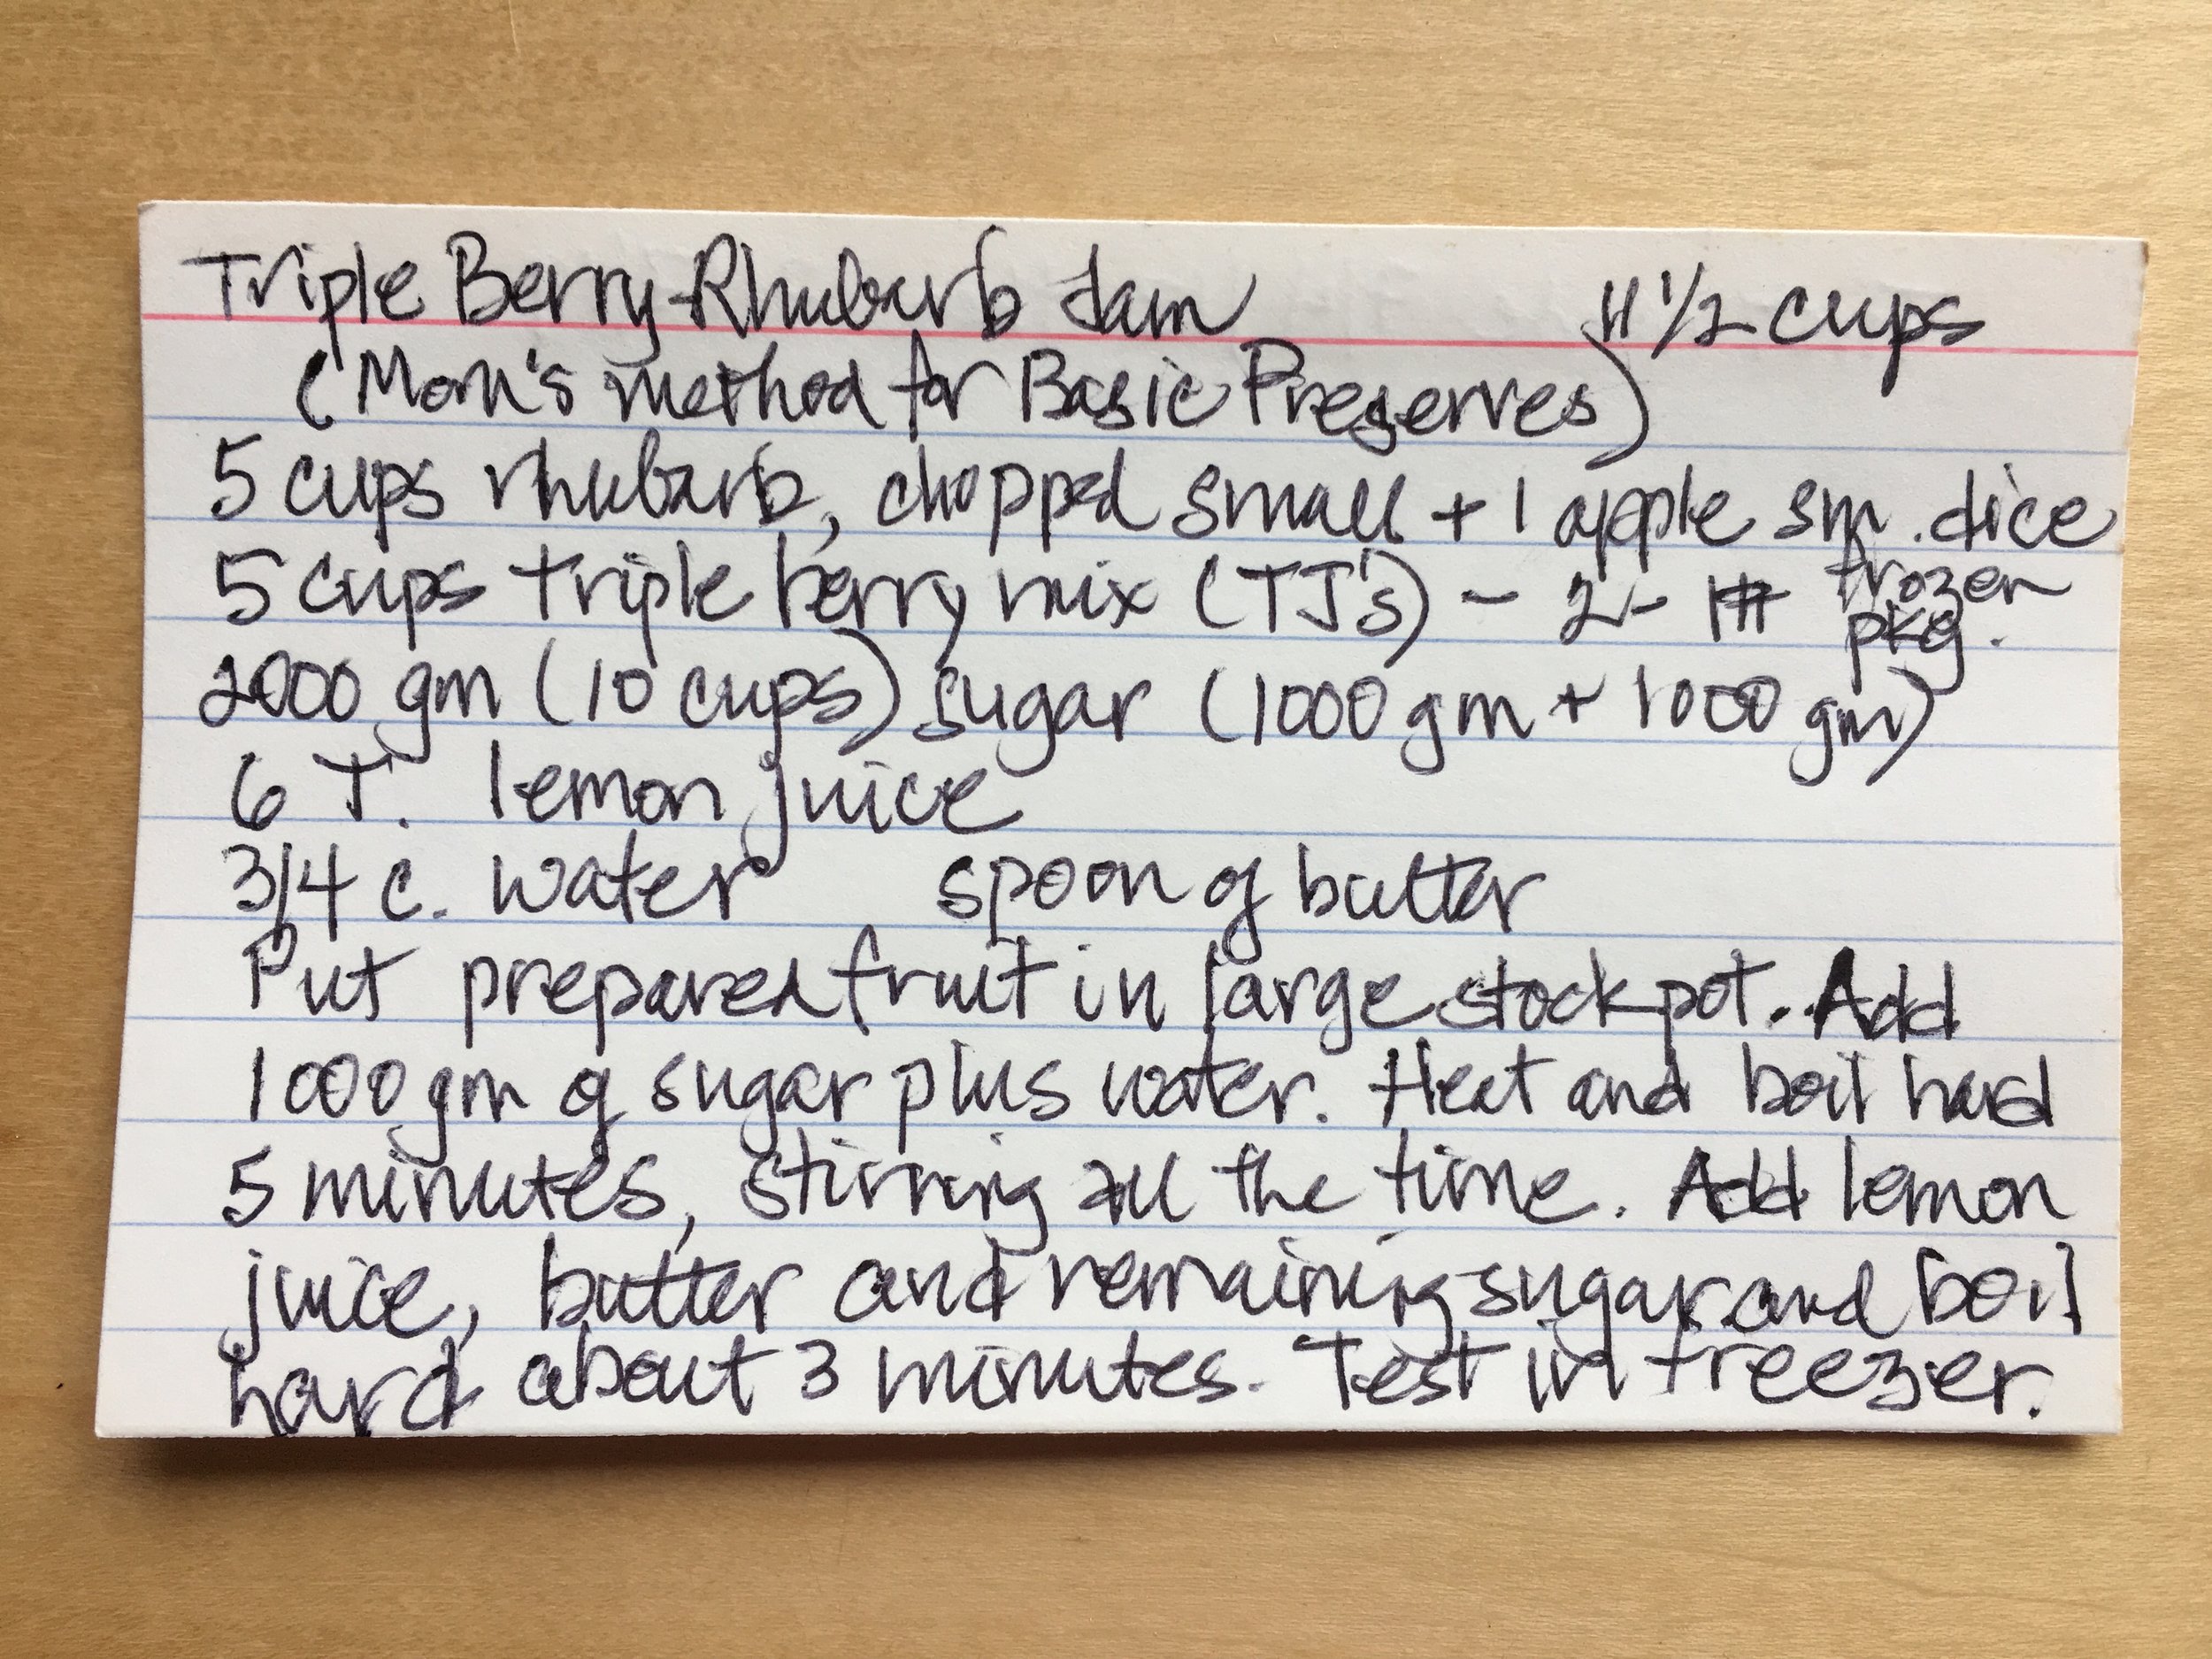 Triple Berry-Rhubarb Jam 11 1/2 cups
(Mom's method for Basic Preserves)
5 cups rhubarb, chopped small + 1 apple sm. dice
5 cups triple berry mix (TJ's) - 2 - 1# frozen pkg.
2000 gm (10 cups) sugar (1000 gm + 1000 gm)
6 T. lemon juice
3/4 c. water spoon of butter
Put prepared fruit in large stock pot. Add
1000 gm of sugar plus water. Heat and boil hard
5 minutes, stirring all the time. Add lemon
juice, butter and remaining sugar and boil
hard about 3 minutes. Test in freezer.